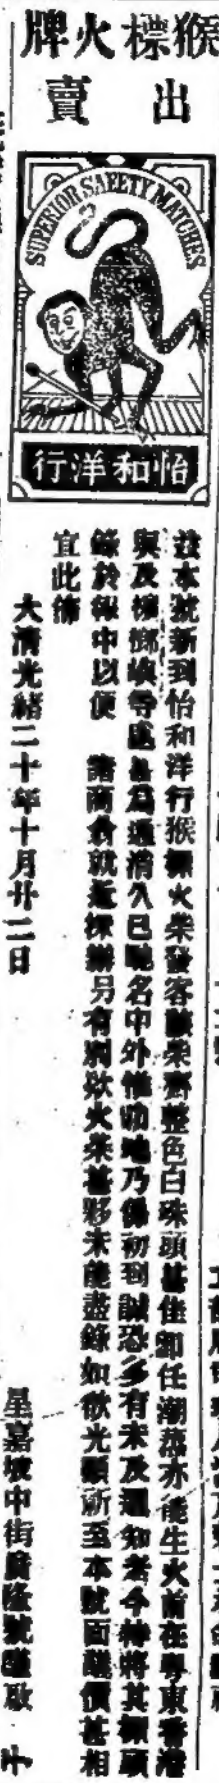 猴標火牌
出賣
SUPERIOR SAFETY MATCHES
怡和洋行
茲本號新到怡和洋行猴標火柴發客該柴齊整色白珠頭甚佳卽任潮蒸亦能生火前在粤東香港
與及檳榔嶼等區甚為通消久已馳名中外惟叻地乃係初到誠恐多有未及週知者今特將其標頭
錄於報中以便 諸商翁就近採辦另有別欵火柴甚夥未能盡錄如欲光顧祈至本號面議價甚相
宜此佈
大清光緒二十年十月廿二日
星嘉坡中街廣隆號謹啟